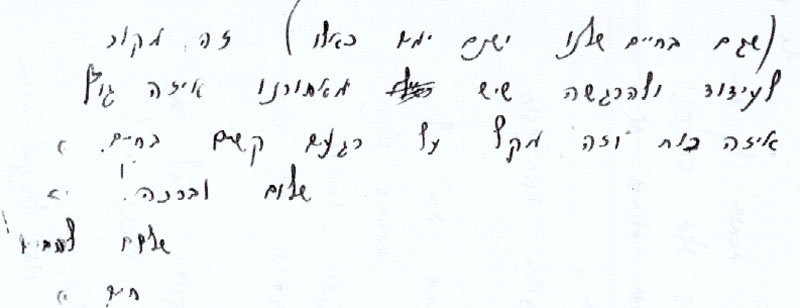 (שגם בחיים שלנו ישנם ימים כאלו) זה מקור
לעידוד ולהרגשה שיש מאחורנו איזה גוף
איזה כוח וזה מקל על רגעים קשים בחיים.
שלום וברכה.